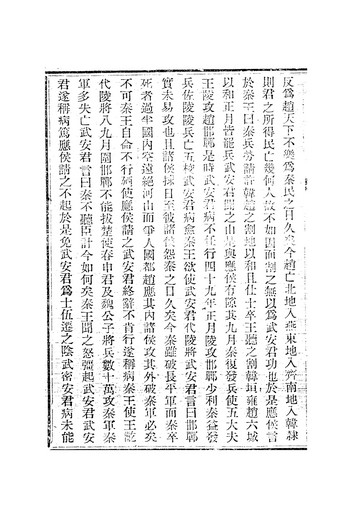 反爲趙天下不樂爲秦民之日久矣今趙亡北地入燕東地入齊南地入韓魏
則君之所得民亡幾何人故不如因而割之無以爲武安君功也於是應侯言
於秦王曰秦兵勞請許韓趙之割地以和且休士卒王聽之割韓垣雍趙六城
以和正月皆罷兵武安君聞之由是與應侯有隙其九月秦復發兵使五大夫
王陵攻趙邯鄲是時武安君病不任行四十九年正月陵攻邯鄲少利秦益發
兵佐陵陵兵亡五校武安君病愈秦王欲使武安君代陵將武安君言曰邯鄲
實未易攻也且諸侯救日至彼諸侯怨秦之日久矣今秦雖破長平軍而秦卒
死者過半國內空遠絕河山而爭人國都趙應其內諸侯攻其外破秦軍必矣
不可秦王自命不行乃使應侯請之武安君終辭不肯行遂稱病秦王使王齕
代陵將八九月圍邯鄲不能拔楚使春申君及魏公子將兵數十萬攻秦軍秦
軍多失亡武安君言曰秦不聽臣計今如何矣秦王聞之怒彊起武安君武安
君遂稱病篤應侯請之不起於是免武安君爲士伍遷之陰武密安君病未能